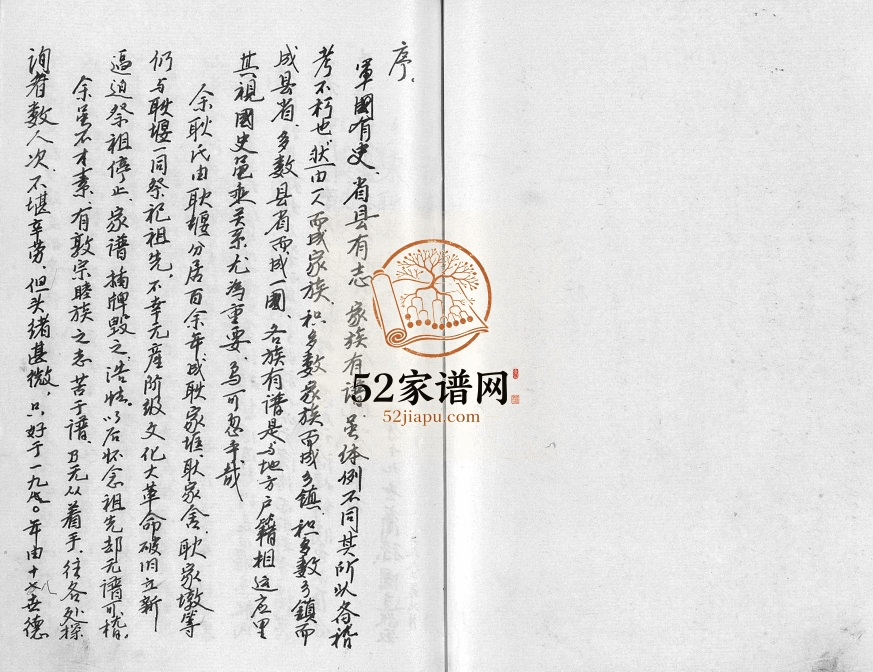 序。
軍國有史、省县有志 家族有谱、虽体例不同其所以备稽
考不朽也 然由一人而成家族、积多数家族而成乡镇、积多数乡鎮而
成县省、多数县省而成一國、各族有谱是与地方户籍相这应里
其視國史邑乘关系尤為重要、焉可忽乎哉
余耿氏由耿堰分居百余年成耿家堆耿家舍、耿家墩等
们与耿堰一同祭祀祖先，不幸无産阶级文化大革命破旧立新
逼迫祭祖停止、家谱 牌毁之、浩 以后怀念祖先却无谱可稽。
余虽不才素有敦宗睦族之志 苦于谱、乃无从着手、往各处探
询者数人次、不堪辛劳、但头绪甚微，只好于一九 〇年由十 世德
52家谱网
52jiapu.com